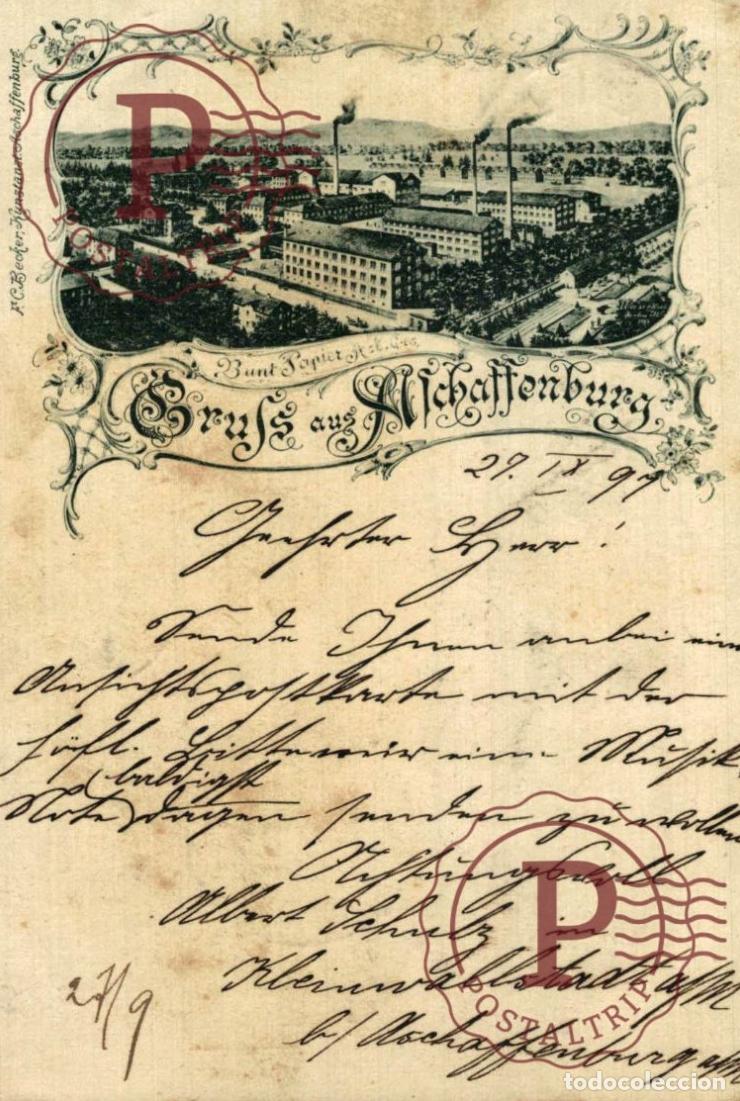 F.C. Becker, Kunstanst. Aschaffenburg
POSTALTRIP
Bunt Papier
Gruss aus Aschaffenburg
27. IX 97
Geehrter Herr!
Sende Ihnen anbei eine
Ansichtspostkarte mit der
höfl. Bitte mir eine Musik-
baldigst
Note dagegen senden zu wollen
Achtungsvoll
Albert Schulz in
Kleinwallstadt a/M
b/ Aschaffenburg a/M
27/9
POSTALTRIP
todocoleccion